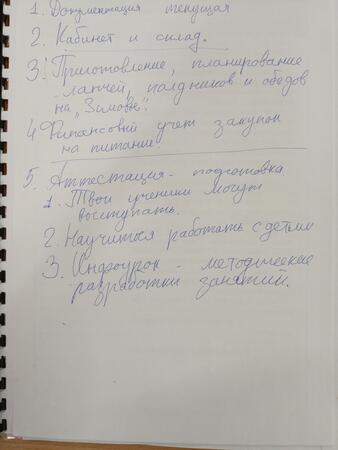 1. Документация текущая
2. Кабинет и склад.
3! Приготовление, планирование
ланчей, полдников и обедов
на „Зимовье".
4 Финансовый учет закупок
на питание.
5. Аттестация - подготовка
1. Твои ученики могут
выступать.
2. Научиться работать с детьми
3. Инфоурок - методические
разработки занятий.